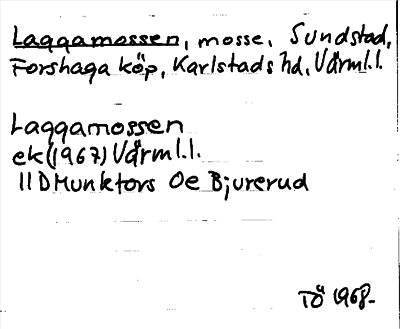 Laggamossen, mosse, Sundstad,
Forshaga köp, Karlstads hd, Värml.l.
Laggamossen
ek (1967) Värml.l.
11D Munkfors 0e Bjurerud
TÖ 1968.